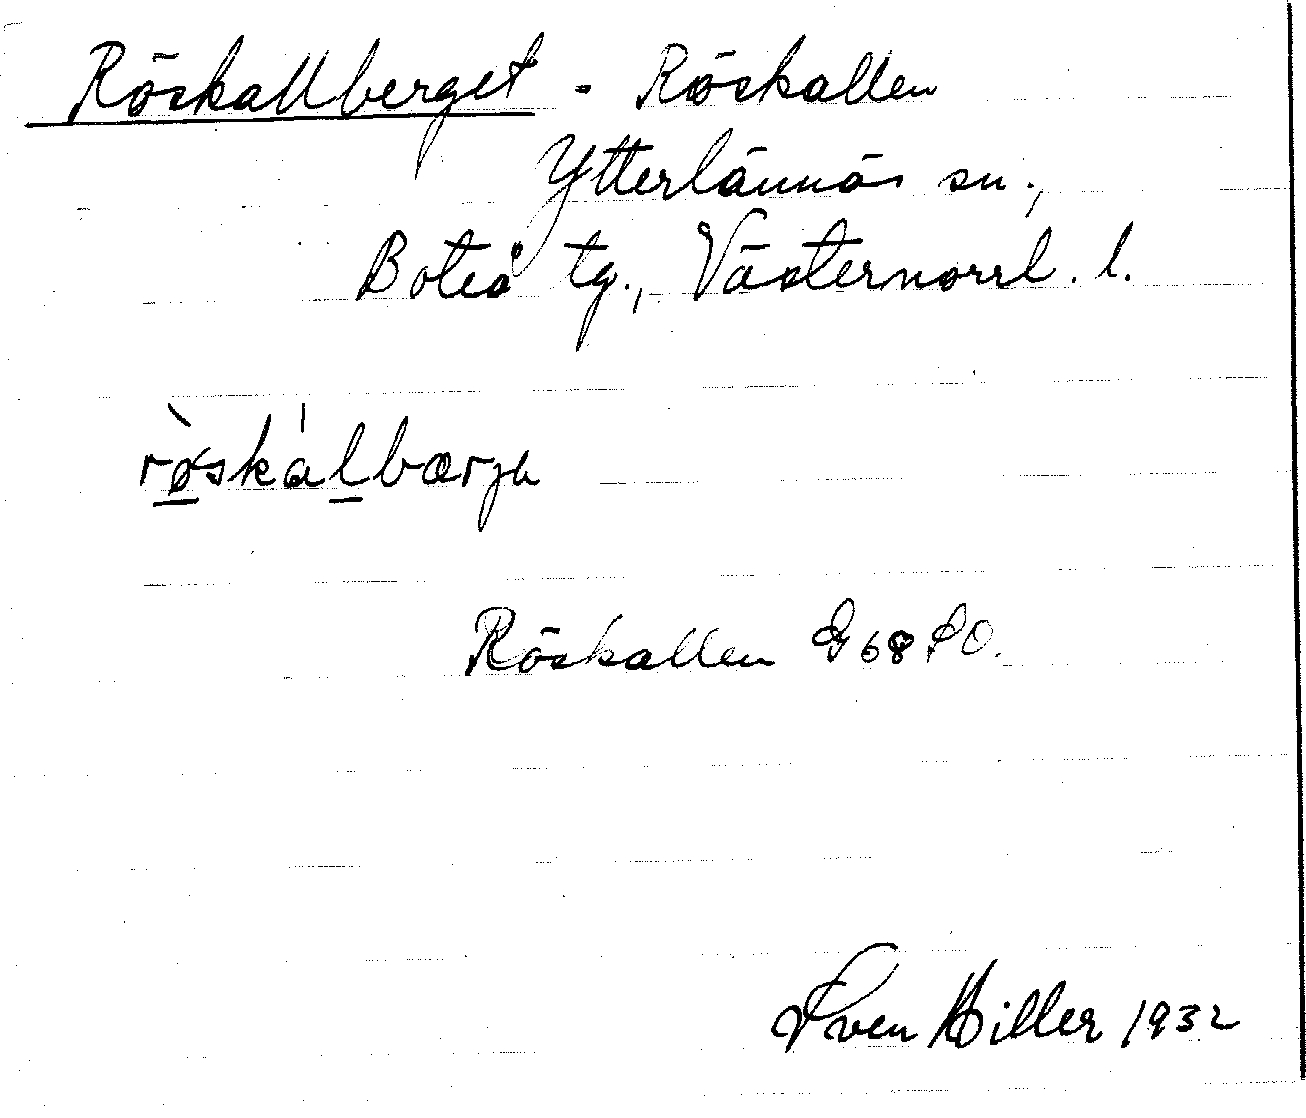 Röskallberget - Röskallen
Ytterlännäs sn.,
Boteå tg., Västernorrl. l.
rø̀skálbærjh
Röskallen G68 SO.
Sven Hiller 1932